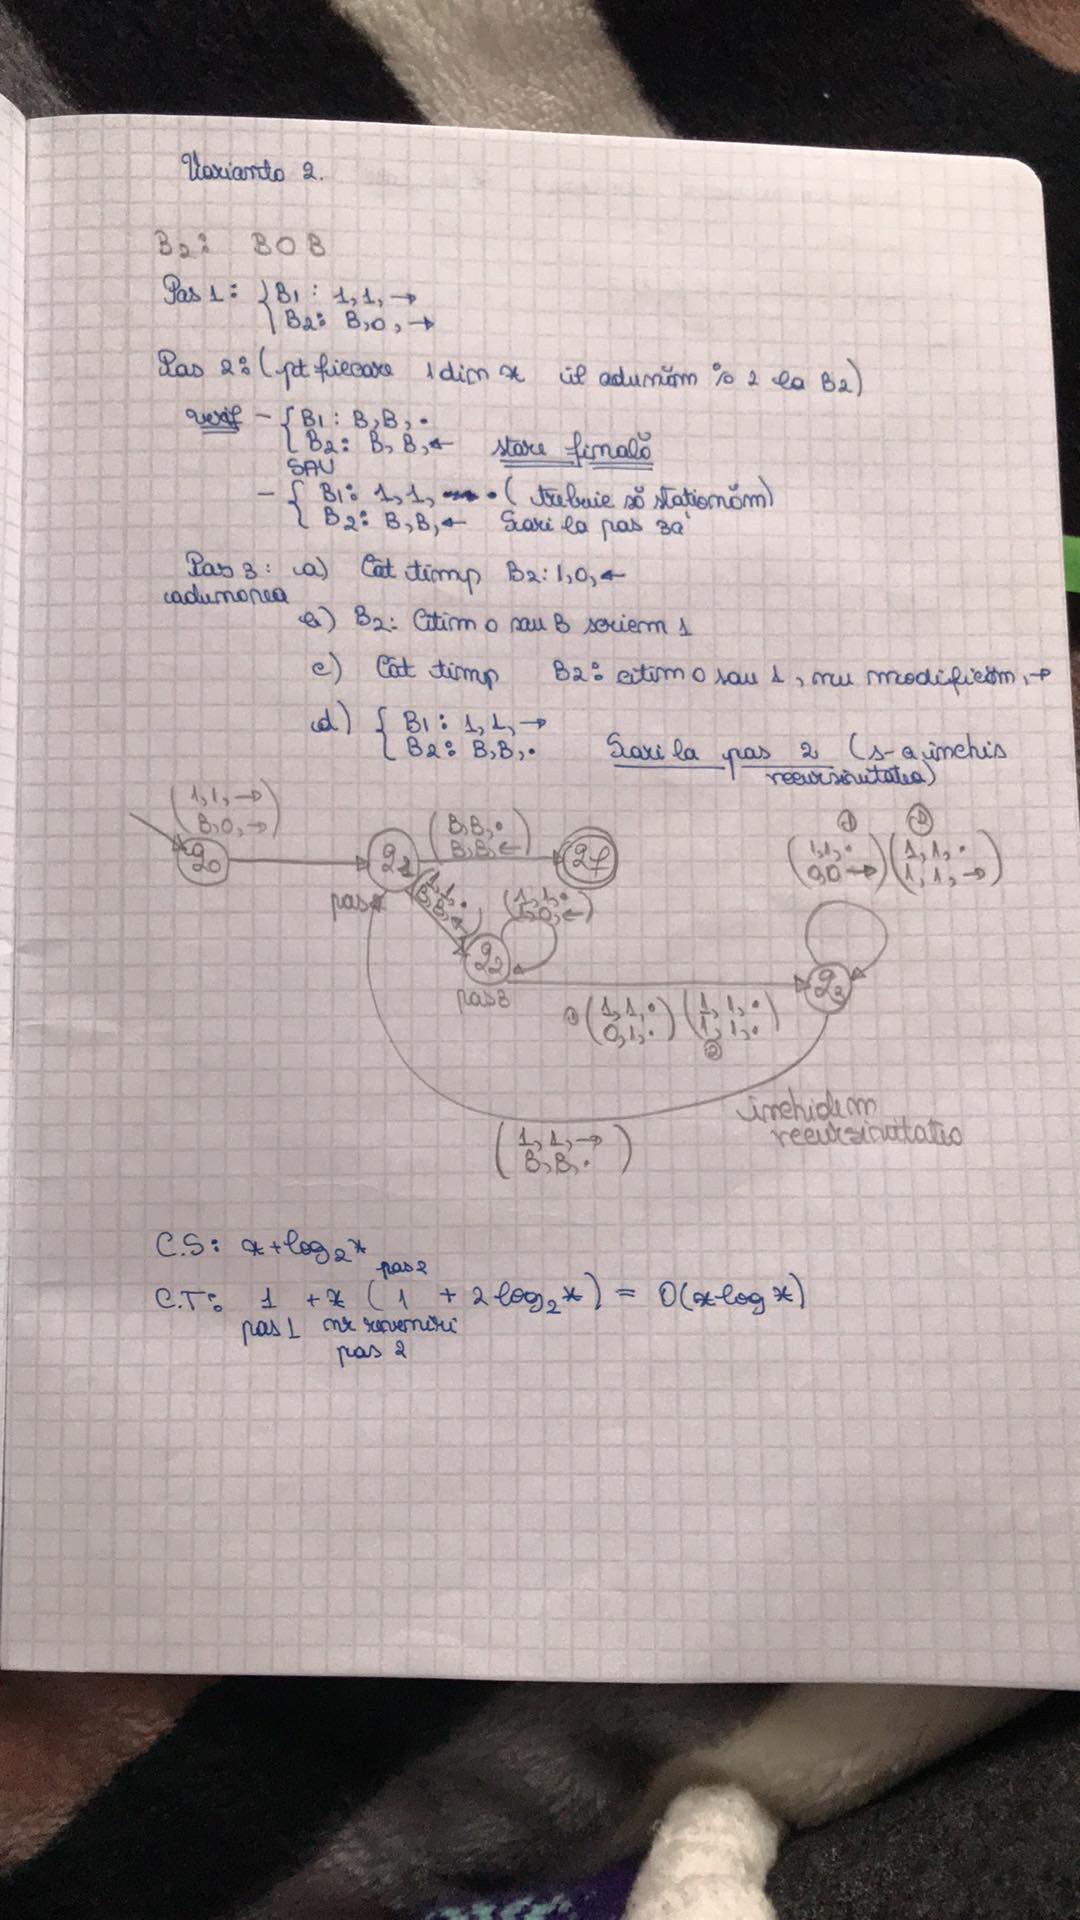 Varianta 2.
B2: B0B
Pas 1: { B1: 1,1,→
B2: B,0,→
Pas 2: (pt fiecare 1 din x îl adunăm % 2 la B2)
verif - { B1: B,B,·
B2: B,B,← stare finală
SAU
- { B1: 1,1, · (trebuie să staționăm)
B2: B,B,← Sari la pas 3a
Pas 3: a) Cât timp B2: 1,0,←
adunarea
b) B2: Citim 0 sau B scriem 1
c) Cât timp B2: citim 0 sau 1, nu modificăm, →
d) { B1: 1,1,→
B2: B,B,· Sari la pas 2 (s-a închis
recursivitatea)
(1,1,→
B,0,→)
q0
q1
(B,B,·
B,B,←)
qf
① (1,1,·
0,0 →)
② (1,1,·
1,1,→)
pas 2
(1,1,·
B,B,←)
(1,1,·
1,0,←)
q2
pas 3
q3
① (1,1,·
0,1,·)
(1,1,·
1,1,·)
②
închidem
recursivitatea
(1,1,→
B,B,·)
C.S: x + log2 x
pas 2
C.T: 1 + x (1 + 2 log2 x) = O(x log x)
pas 1 nr reveniri
pas 2